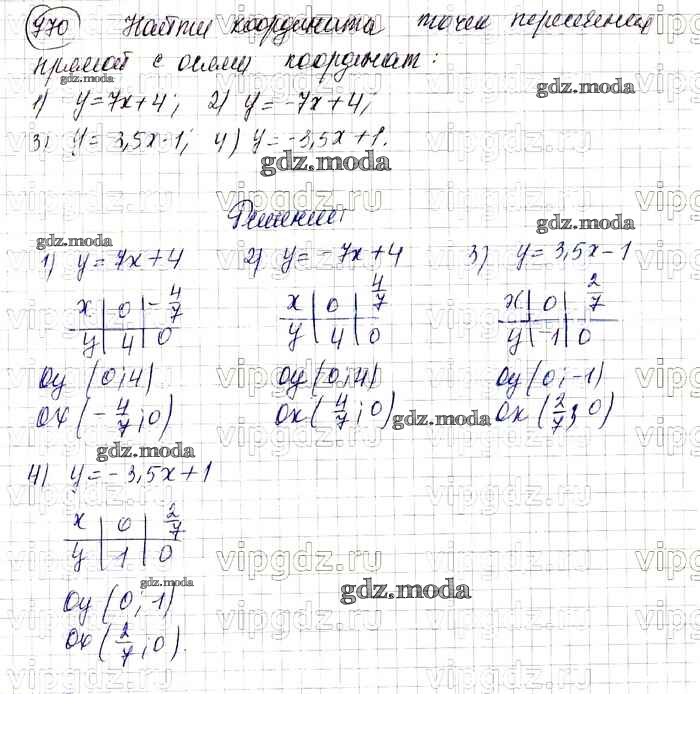 970 Найти координаты точек пересечения
прямой с осями координат:
1) y=7x+4; 2) y=-7x+4;
3) y=3,5x-1; 4) y=-3,5x+1.
Решение:
1) y=7x+4 2) y=-7x+4 3) y=3,5x-1
x | 0 | -4/7 x | 0 | 4/7 x | 0 | 2/7
y | 4 | 0 y | 4 | 0 y | -1 | 0
Oy (0;4) Oy (0;4) Oy (0;-1)
Ox (-4/7;0) Ox (4/7;0) Ox (2/7;0)
4) y=-3,5x+1
x | 0 | 2/7
y | 1 | 0
Oy (0;1)
Ox (2/7;0).
gdz.moda
gdz.moda
gdz.moda
gdz.moda
gdz.moda
gdz.moda
gdz.moda
gdz.moda
gdz.moda
vipgdz.ru